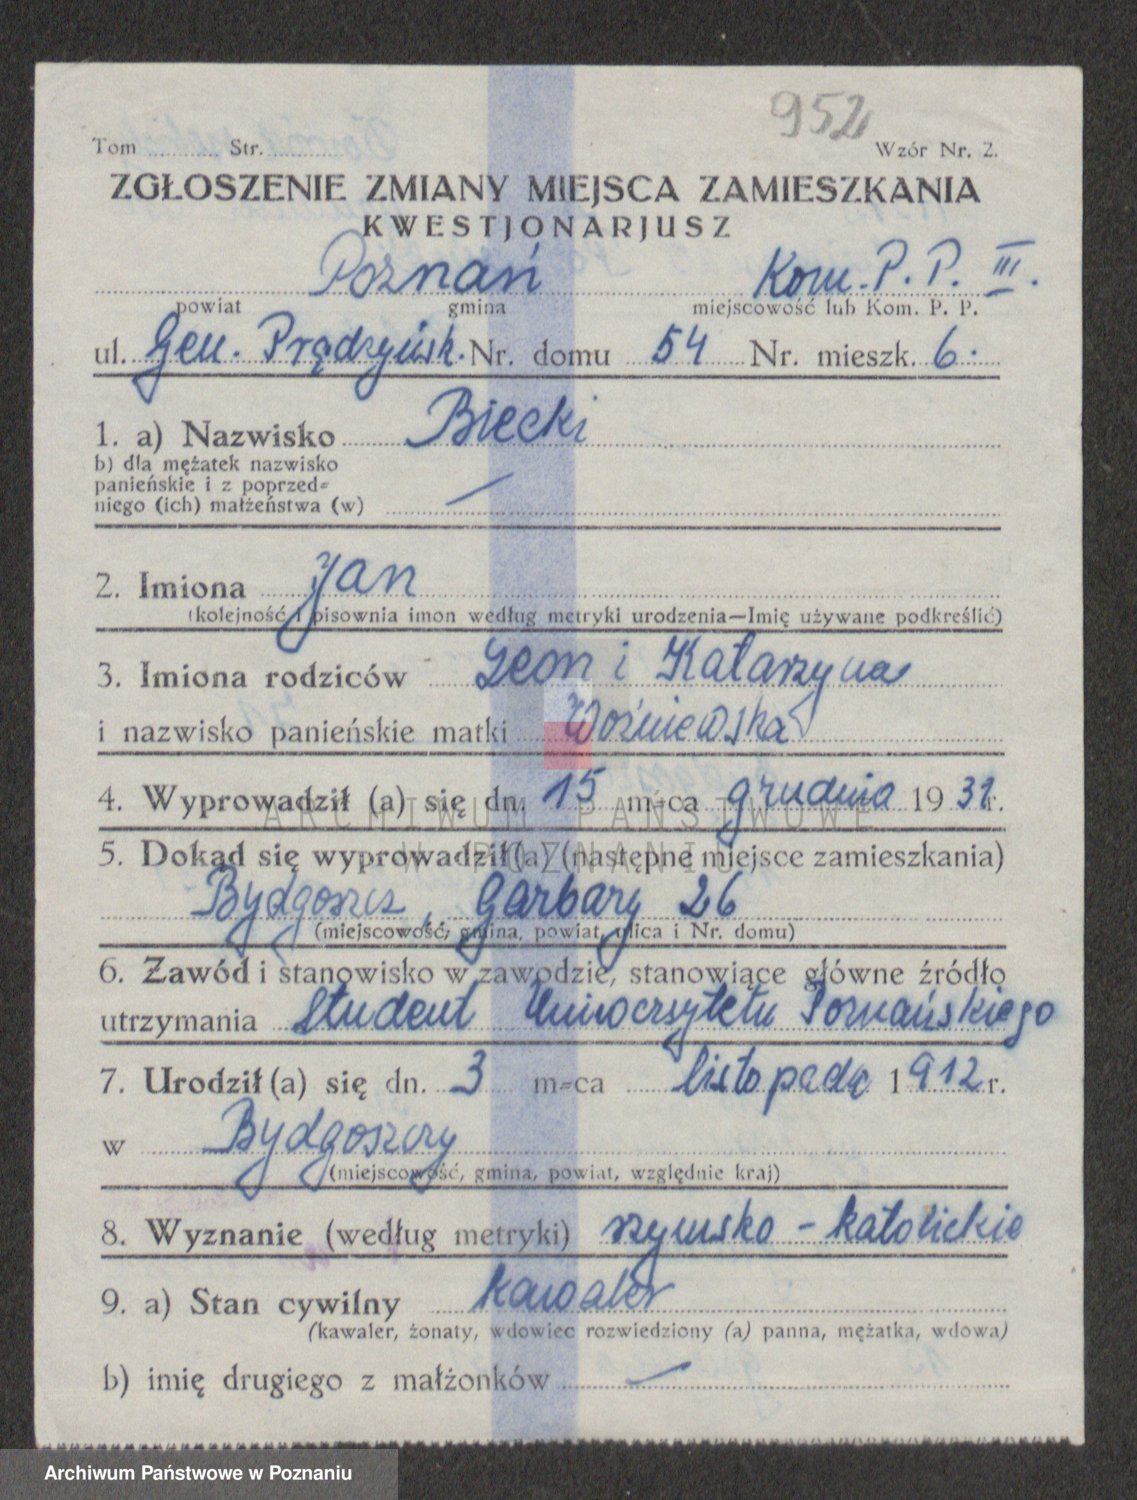 952
Tom ........ Str. ........ Wzór Nr. 2.
ZGŁOSZENIE ZMIANY MIEJSCA ZAMIESZKANIA
KWESTJONARJUSZ
Poznań Kom. P. P. III.
powiat gmina miejscowość lub Kom. P. P.
ul. Gen. Prądzyńsk. Nr. domu 54 Nr. mieszk. 6.
1. a) Nazwisko Biecki
b) dla mężatek nazwisko
panieńskie i z poprzed-
niego (ich) małżeństwa (w) —
2. Imiona Jan
(kolejność i pisownia imon według metryki urodzenia—Imię używane podkreślić)
3. Imiona rodziców Leon i Katarzyna
i nazwisko panieńskie matki Woźniewska
4. Wyprowadził (a) się dn. 15 m-ca grudnia 1931 r.
ARCHIWUM PAŃSTWOWE
W POZNANIU
5. Dokąd się wyprowadził (a) (następne miejsce zamieszkania)
Bydgoszcz, Garbary 26
(miejscowość, gmina, powiat, ulica i Nr. domu)
6. Zawód i stanowisko w zawodzie, stanowiące główne źródło
utrzymania Student Uniwersytetu Poznańskiego
7. Urodził (a) się dn. 3 m-ca listopada 1912 r.
w Bydgoszczy
(miejscowość, gmina, powiat, względnie kraj)
8. Wyznanie (według metryki) rzymsko - katolickie
9. a) Stan cywilny kawaler
(kawaler, żonaty, wdowiec rozwiedziony (a) panna, mężatka, wdowa)
b) imię drugiego z małżonków —
Archiwum Państwowe w Poznaniu